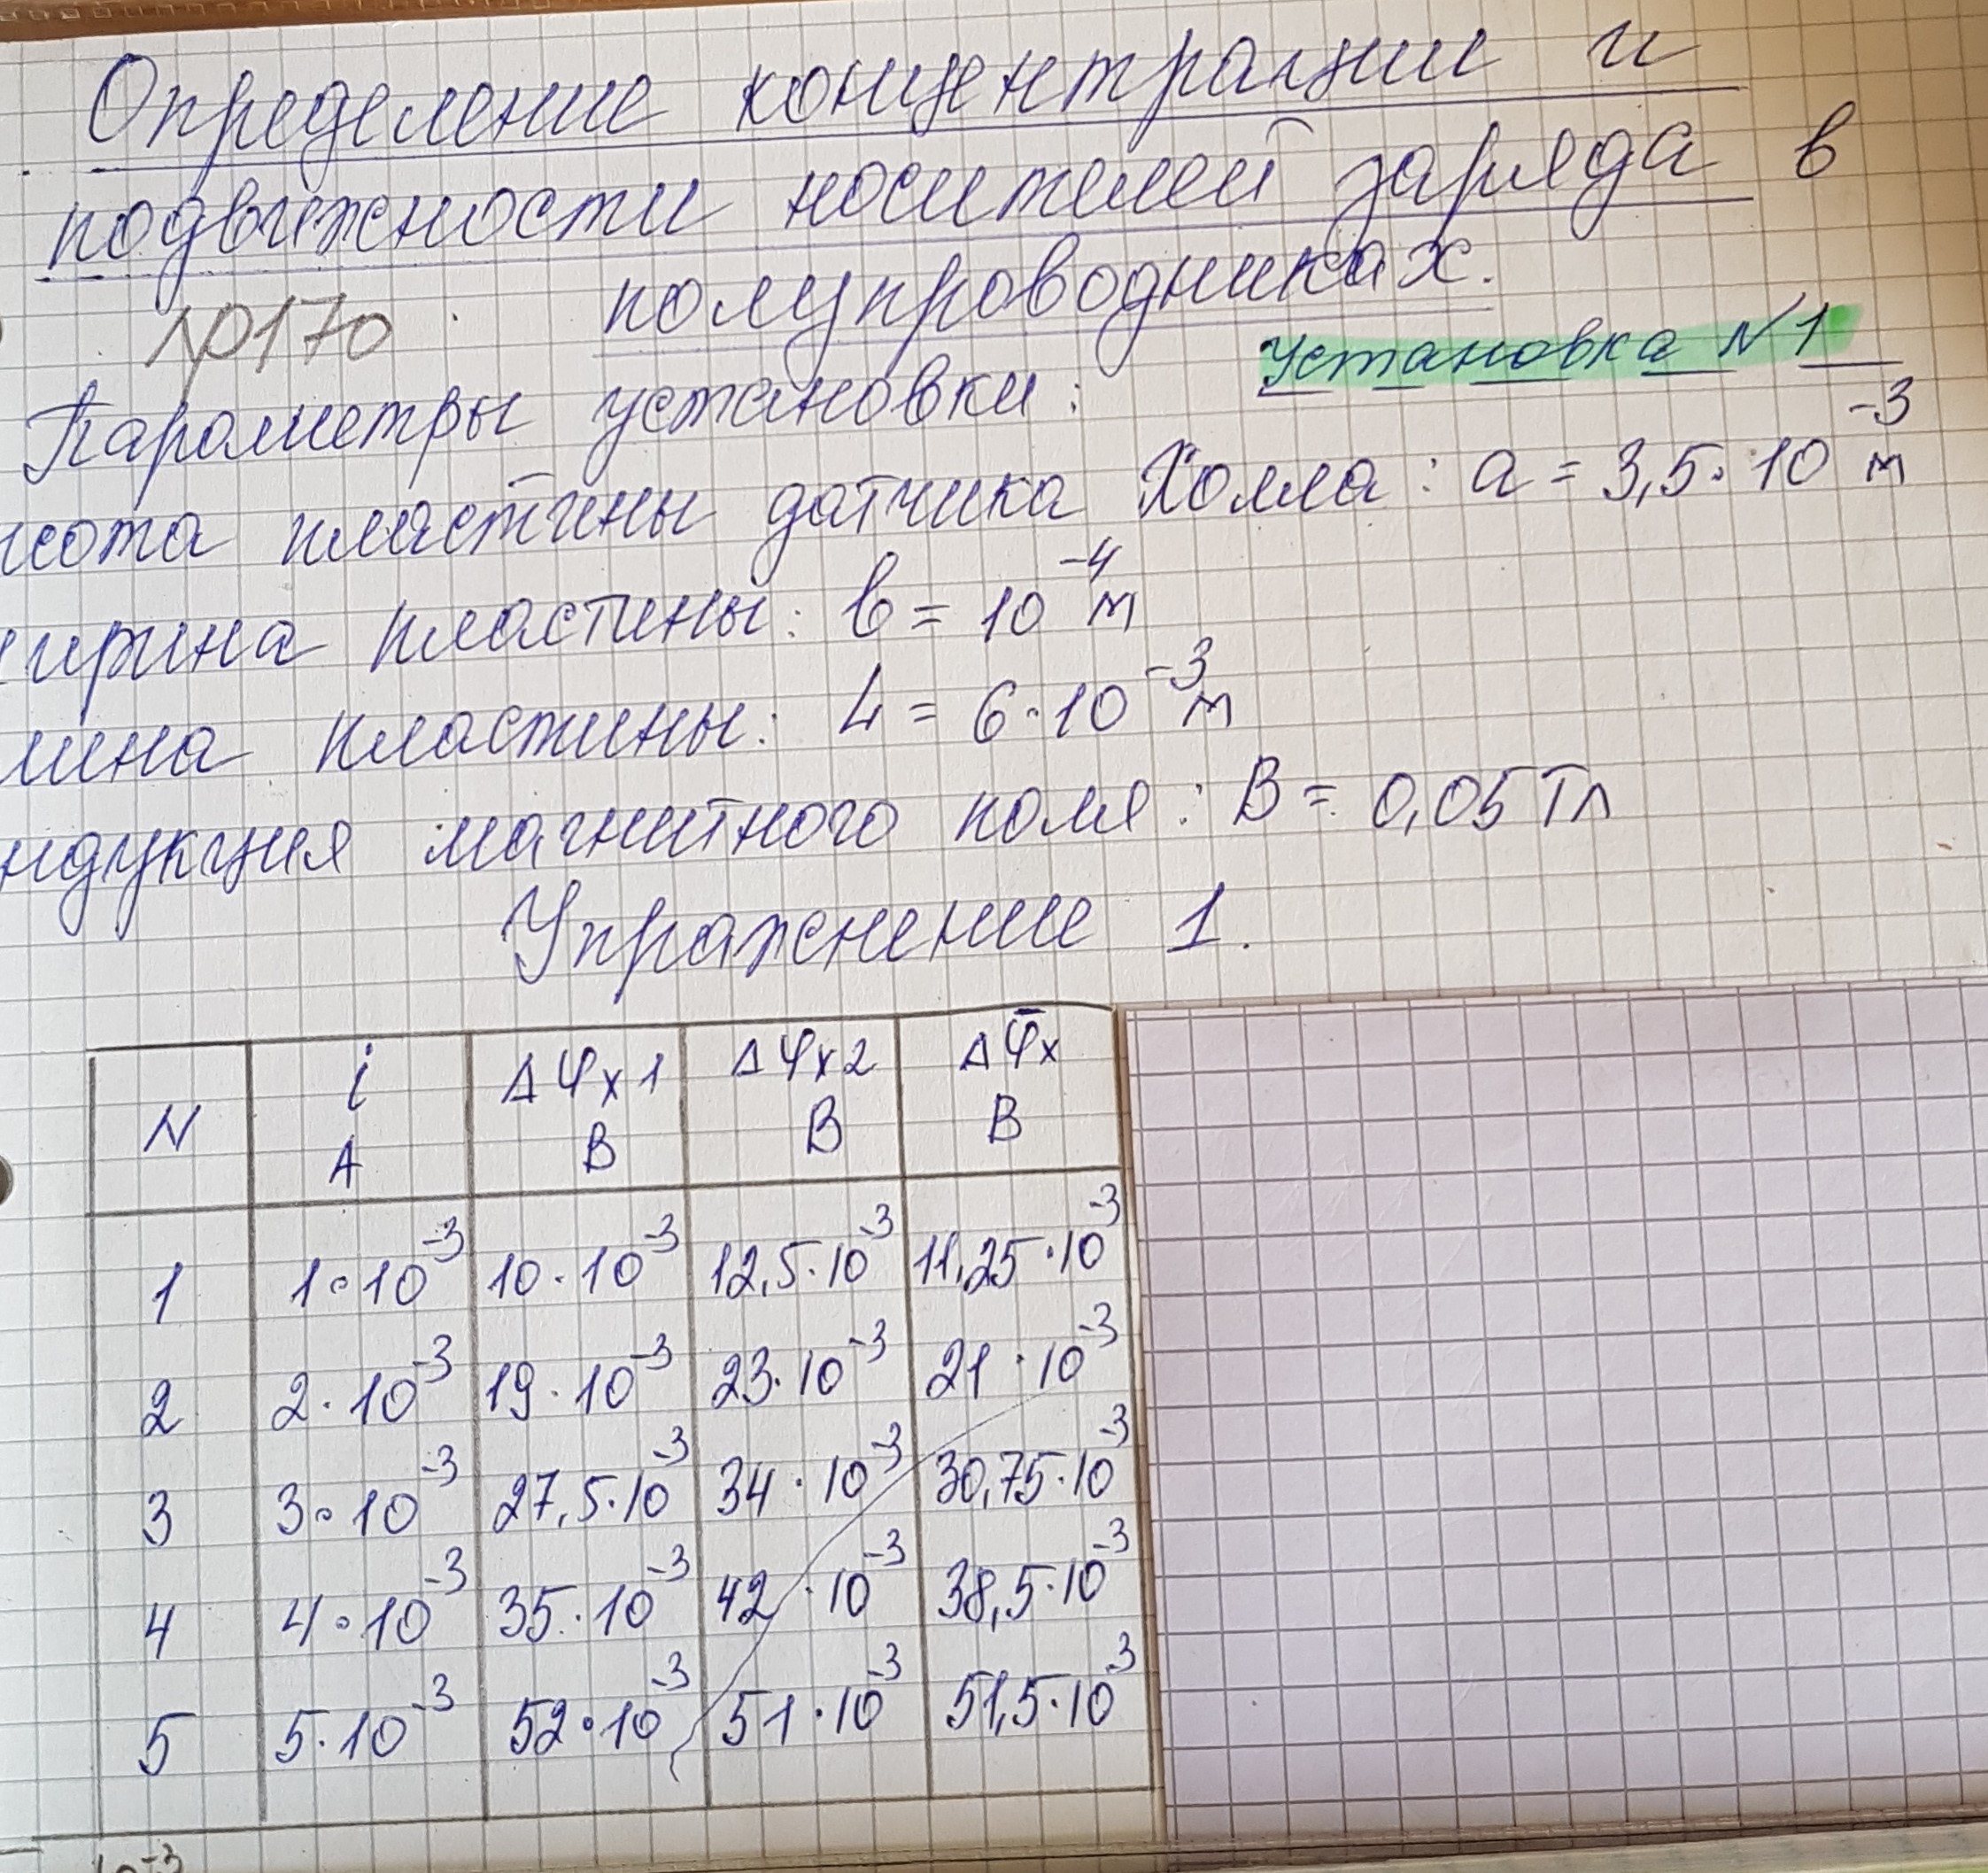 Определение концентрации и
подвижности носителей заряда в
полупроводниках.
№170
Установка N1
Параметры установки:
сота пластины датчика Холла: a = 3,5·10⁻³ м
ирина пластины: b = 10⁻⁴ м
лина пластины: L = 6·10⁻³ м
ндукция магнитного поля: B = 0,05 Тл
Упражнение 1.
N i A Δφx1 В Δφx2 В Δφ̄x В
1 1·10⁻³ 10·10⁻³ 12,5·10⁻³ 11,25·10⁻³
2 2·10⁻³ 19·10⁻³ 23·10⁻³ 21·10⁻³
3 3·10⁻³ 27,5·10⁻³ 34·10⁻³ 30,75·10⁻³
4 4·10⁻³ 35·10⁻³ 42·10⁻³ 38,5·10⁻³
5 5·10⁻³ 52·10⁻³ 51·10⁻³ 51,5·10⁻³